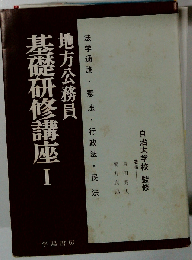 地方公務員
基礎研修講座 I
法学通論・憲法・行政法・民法
自治大学校 監修
学陽書房